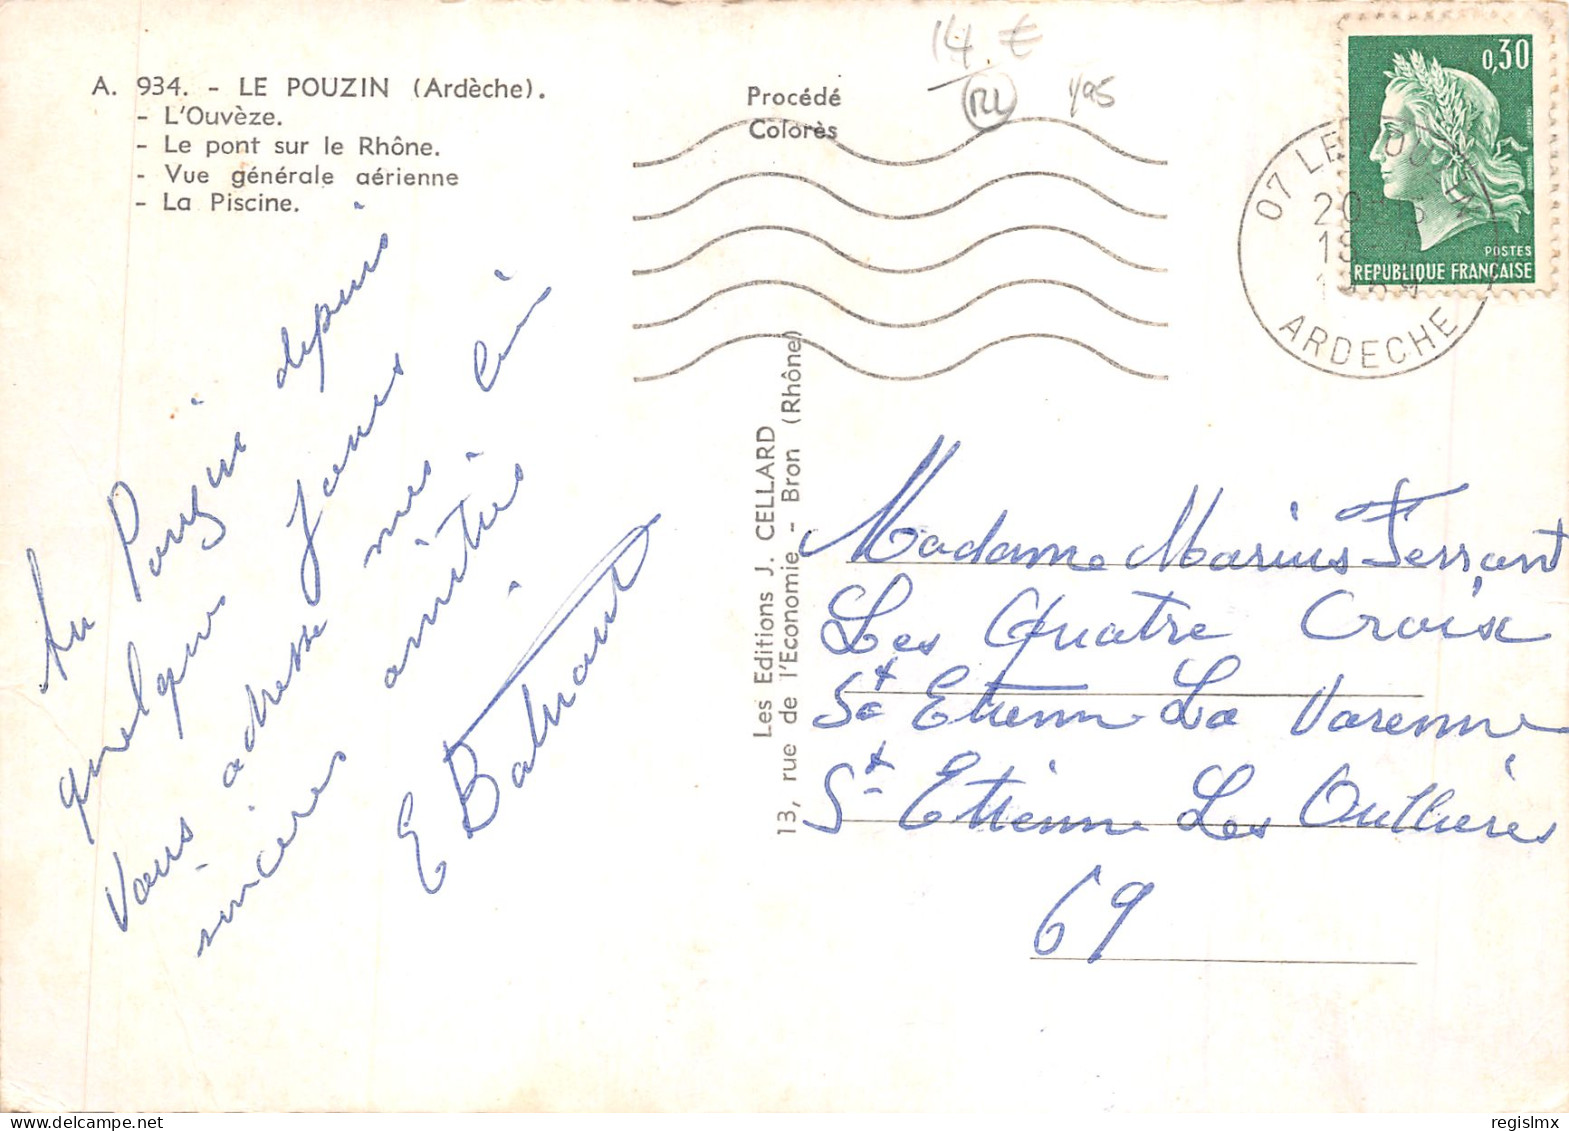 A. 934. - LE POUZIN (Ardèche).
- L'Ouvèze.
- Le pont sur le Rhône.
- Vue générale aérienne
- La Piscine.
Procédé
Colorès
14 €
1/95
0,30
POSTES
REPUBLIQUE FRANÇAISE
07 LE POUZIN
ARDECHE
Au Pouzin depuis
quelques jours
vous adresse mes
sincères amitiés
E
Les Editions J. CELLARD
13, rue de l'Economie - Bron (Rhône)
Madame Marius Ferrant
Les Quatre Croix
St Etienne La Varenne
St Etienne Les Oullières
69
regislmx